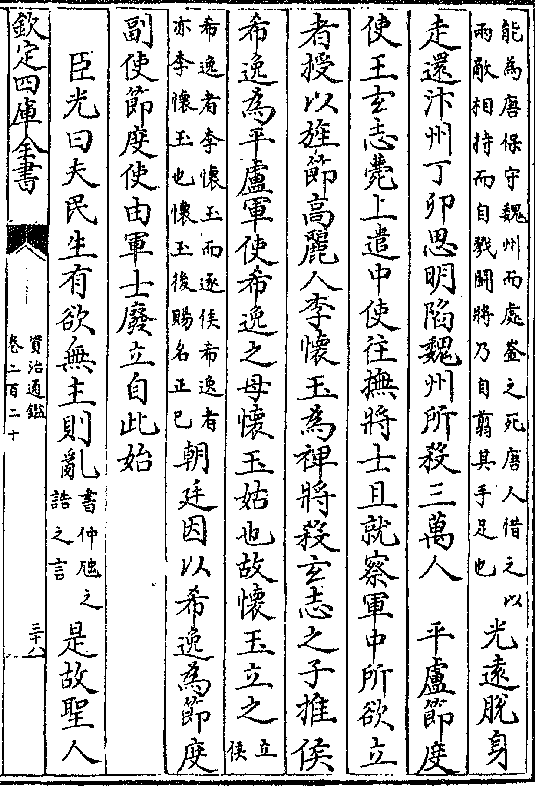 能為唐保守魏州而處崟之死唐人惜之以
兩敵相持而自戮鬭將乃自翦其手足也
光遠脫身
走還汴州丁卯思明陷魏州所殺三萬人　平盧節度
使王玄志薨上遣中使往撫將士且就察軍中所欲立
者授以旌節高麗人李懷玉為裨將殺玄志之子推侯
希逸為平盧軍使希逸之母懷玉姑也故懷玉立之
立侯
希逸者李懷玉而逐侯希逸者
亦李懷玉也懷玉後賜名正已
朝廷因以希逸為節度
副使節度使由軍士廢立自此始
臣光曰夫民生有欲無主則亂
書仲虺之
誥之言
是故聖人
欽定四庫全書
資治通鑑
卷二百二十
三十八